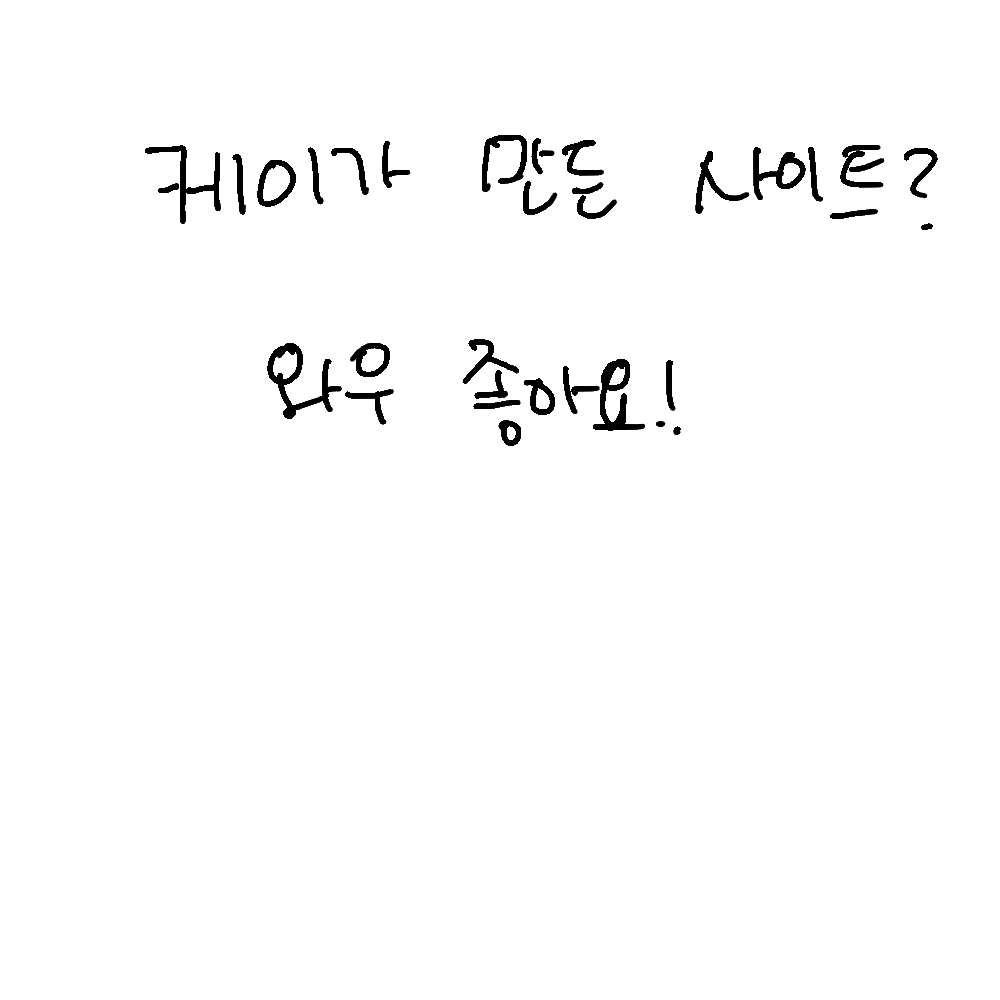 케이가 만든 사이트?
와우 좋아요!